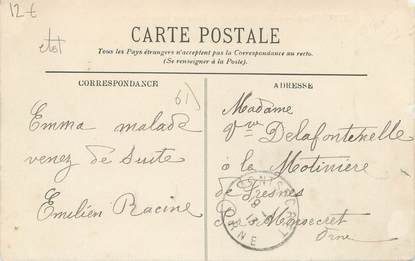 12€
etst
CARTE POSTALE
Tous les Pays étrangers n'acceptent pas la Correspondance au recto.
(Se renseigner à la Poste).
CORRESPONDANCE
61)
Emma malade
venez de Suite
Emilien Racine
ADRESSE
Madame
Vve Delafontenelle
à la Motinière
de Fresnes
par Montsecret
Orne
MONTSECRET
ORNE